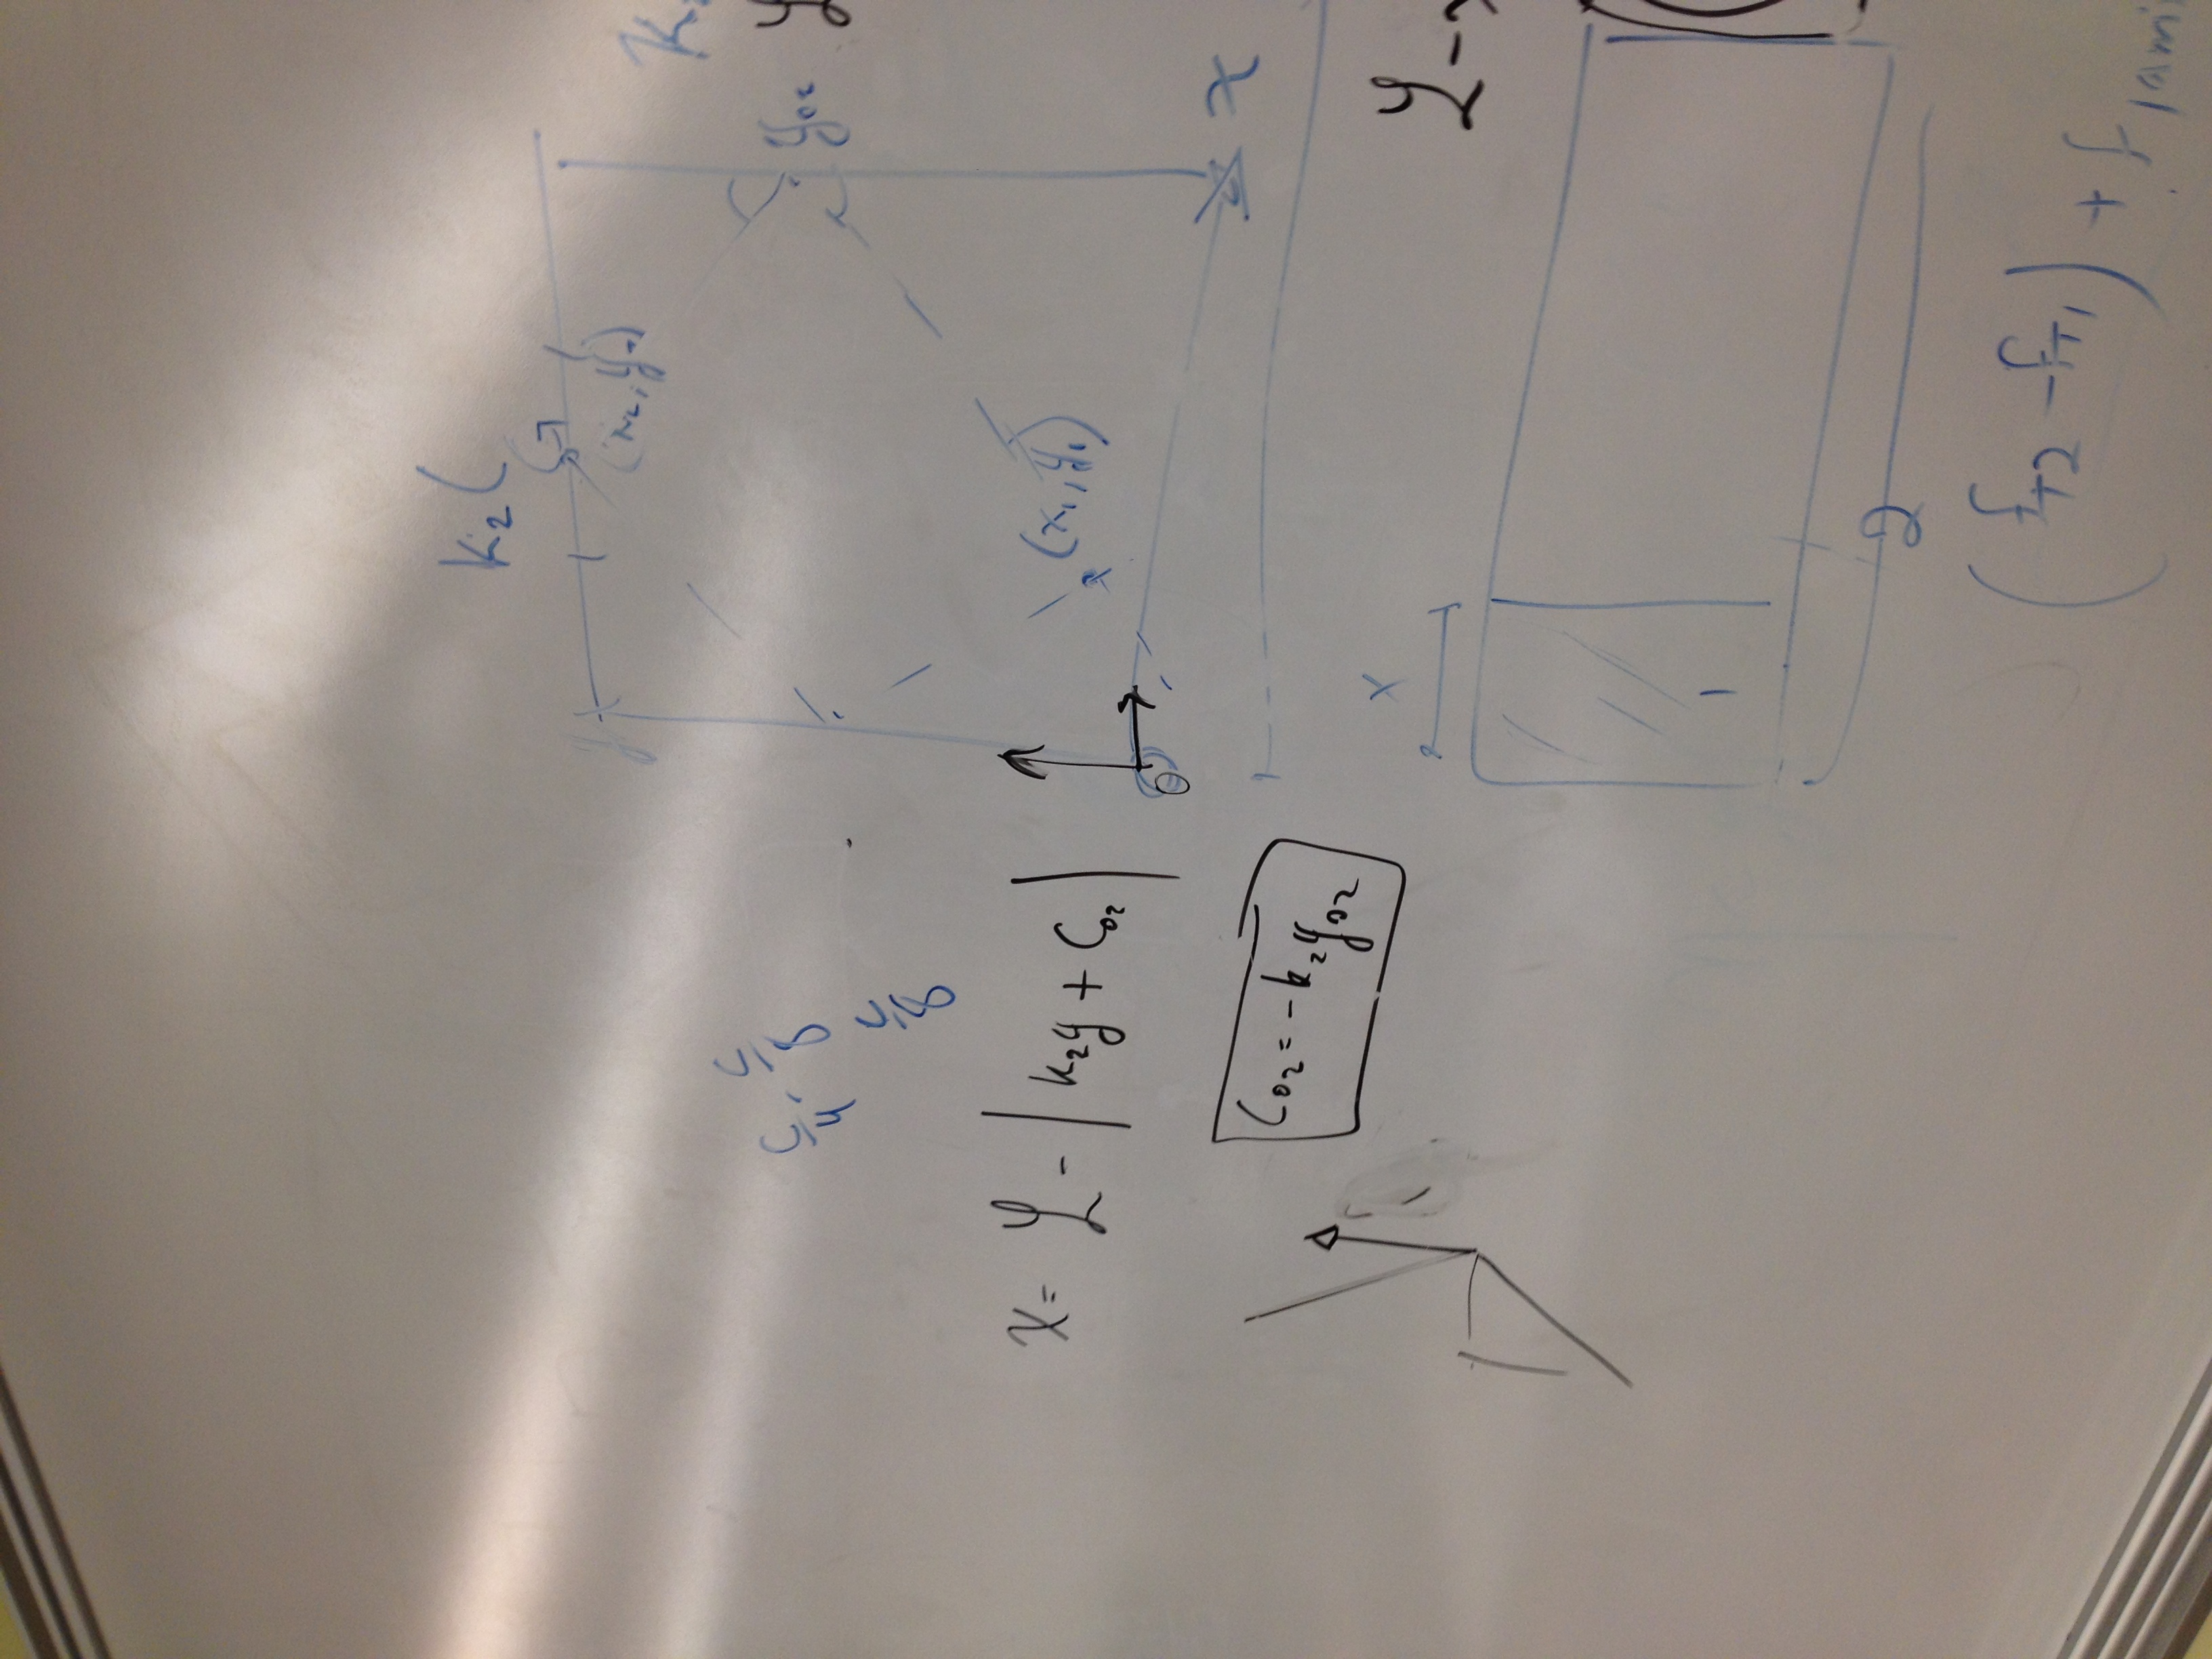 K₂(
y
(x₂, y₂)
K₂
y₀₂
L/4, L/8
L/8
x = ℒ - | k₂y + C₀₂ |
(x₁, y₁)
0
x
C₀₂ = -k₂y₀₂
x
ℒ - x
1
2
(f_T2 - f_T1) + f_lami